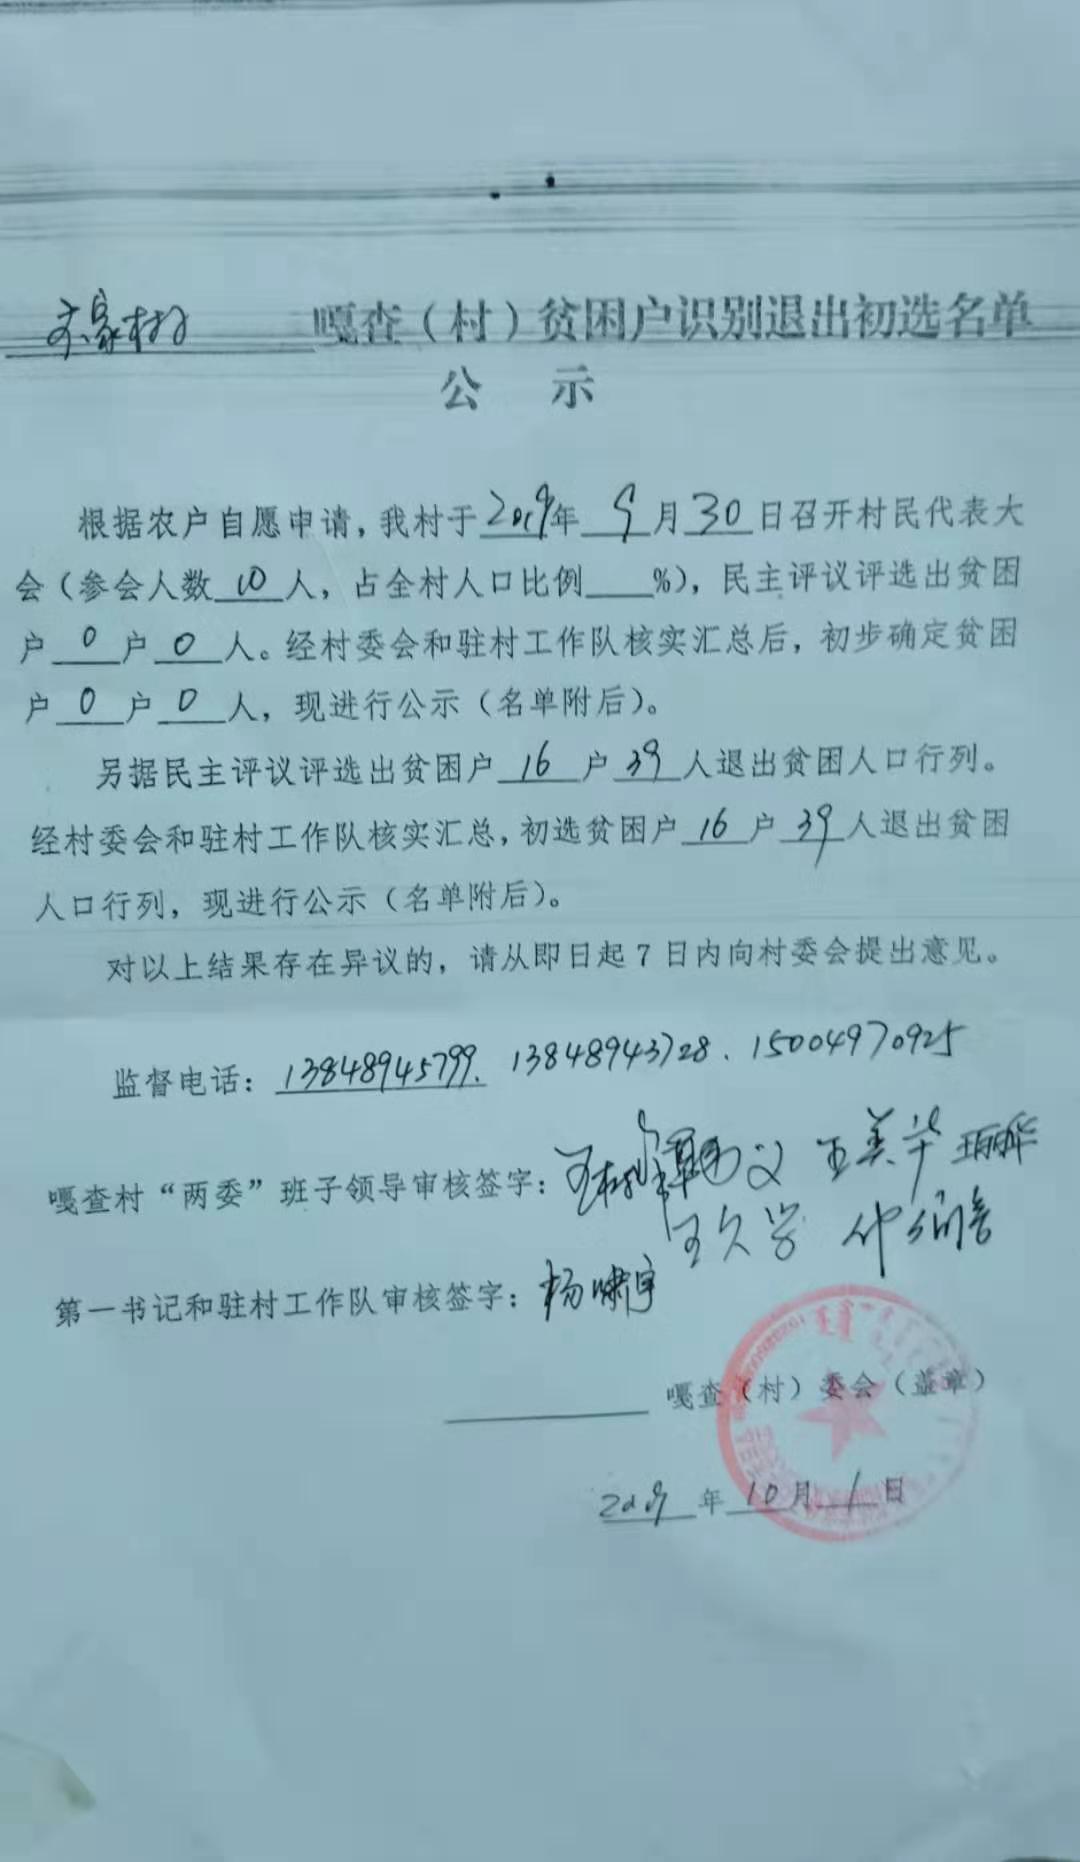 家村 嘎查（村）贫困户识别退出初选名单
公 示
根据农户自愿申请，我村于2019年 9 月 30 日召开村民代表大
会（参会人数 10 人，占全村人口比例____%），民主评议评选出贫困
户 0 户 0 人。经村委会和驻村工作队核实汇总后，初步确定贫困
户 0 户 0 人，现进行公示（名单附后）。
另据民主评议评选出贫困户 16 户 39 人退出贫困人口行列。
经村委会和驻村工作队核实汇总，初选贫困户 16 户 39 人退出贫困
人口行列，现进行公示（名单附后）。
对以上结果存在异议的，请从即日起7日内向村委会提出意见。
监督电话：13848945799、13848943728、15004970925
嘎查村“两委”班子领导审核签字： 王美华 王丽华
王久学
第一书记和驻村工作队审核签字：杨啸宇
嘎查（村）委会（盖章）
2019 年 10 月 1 日